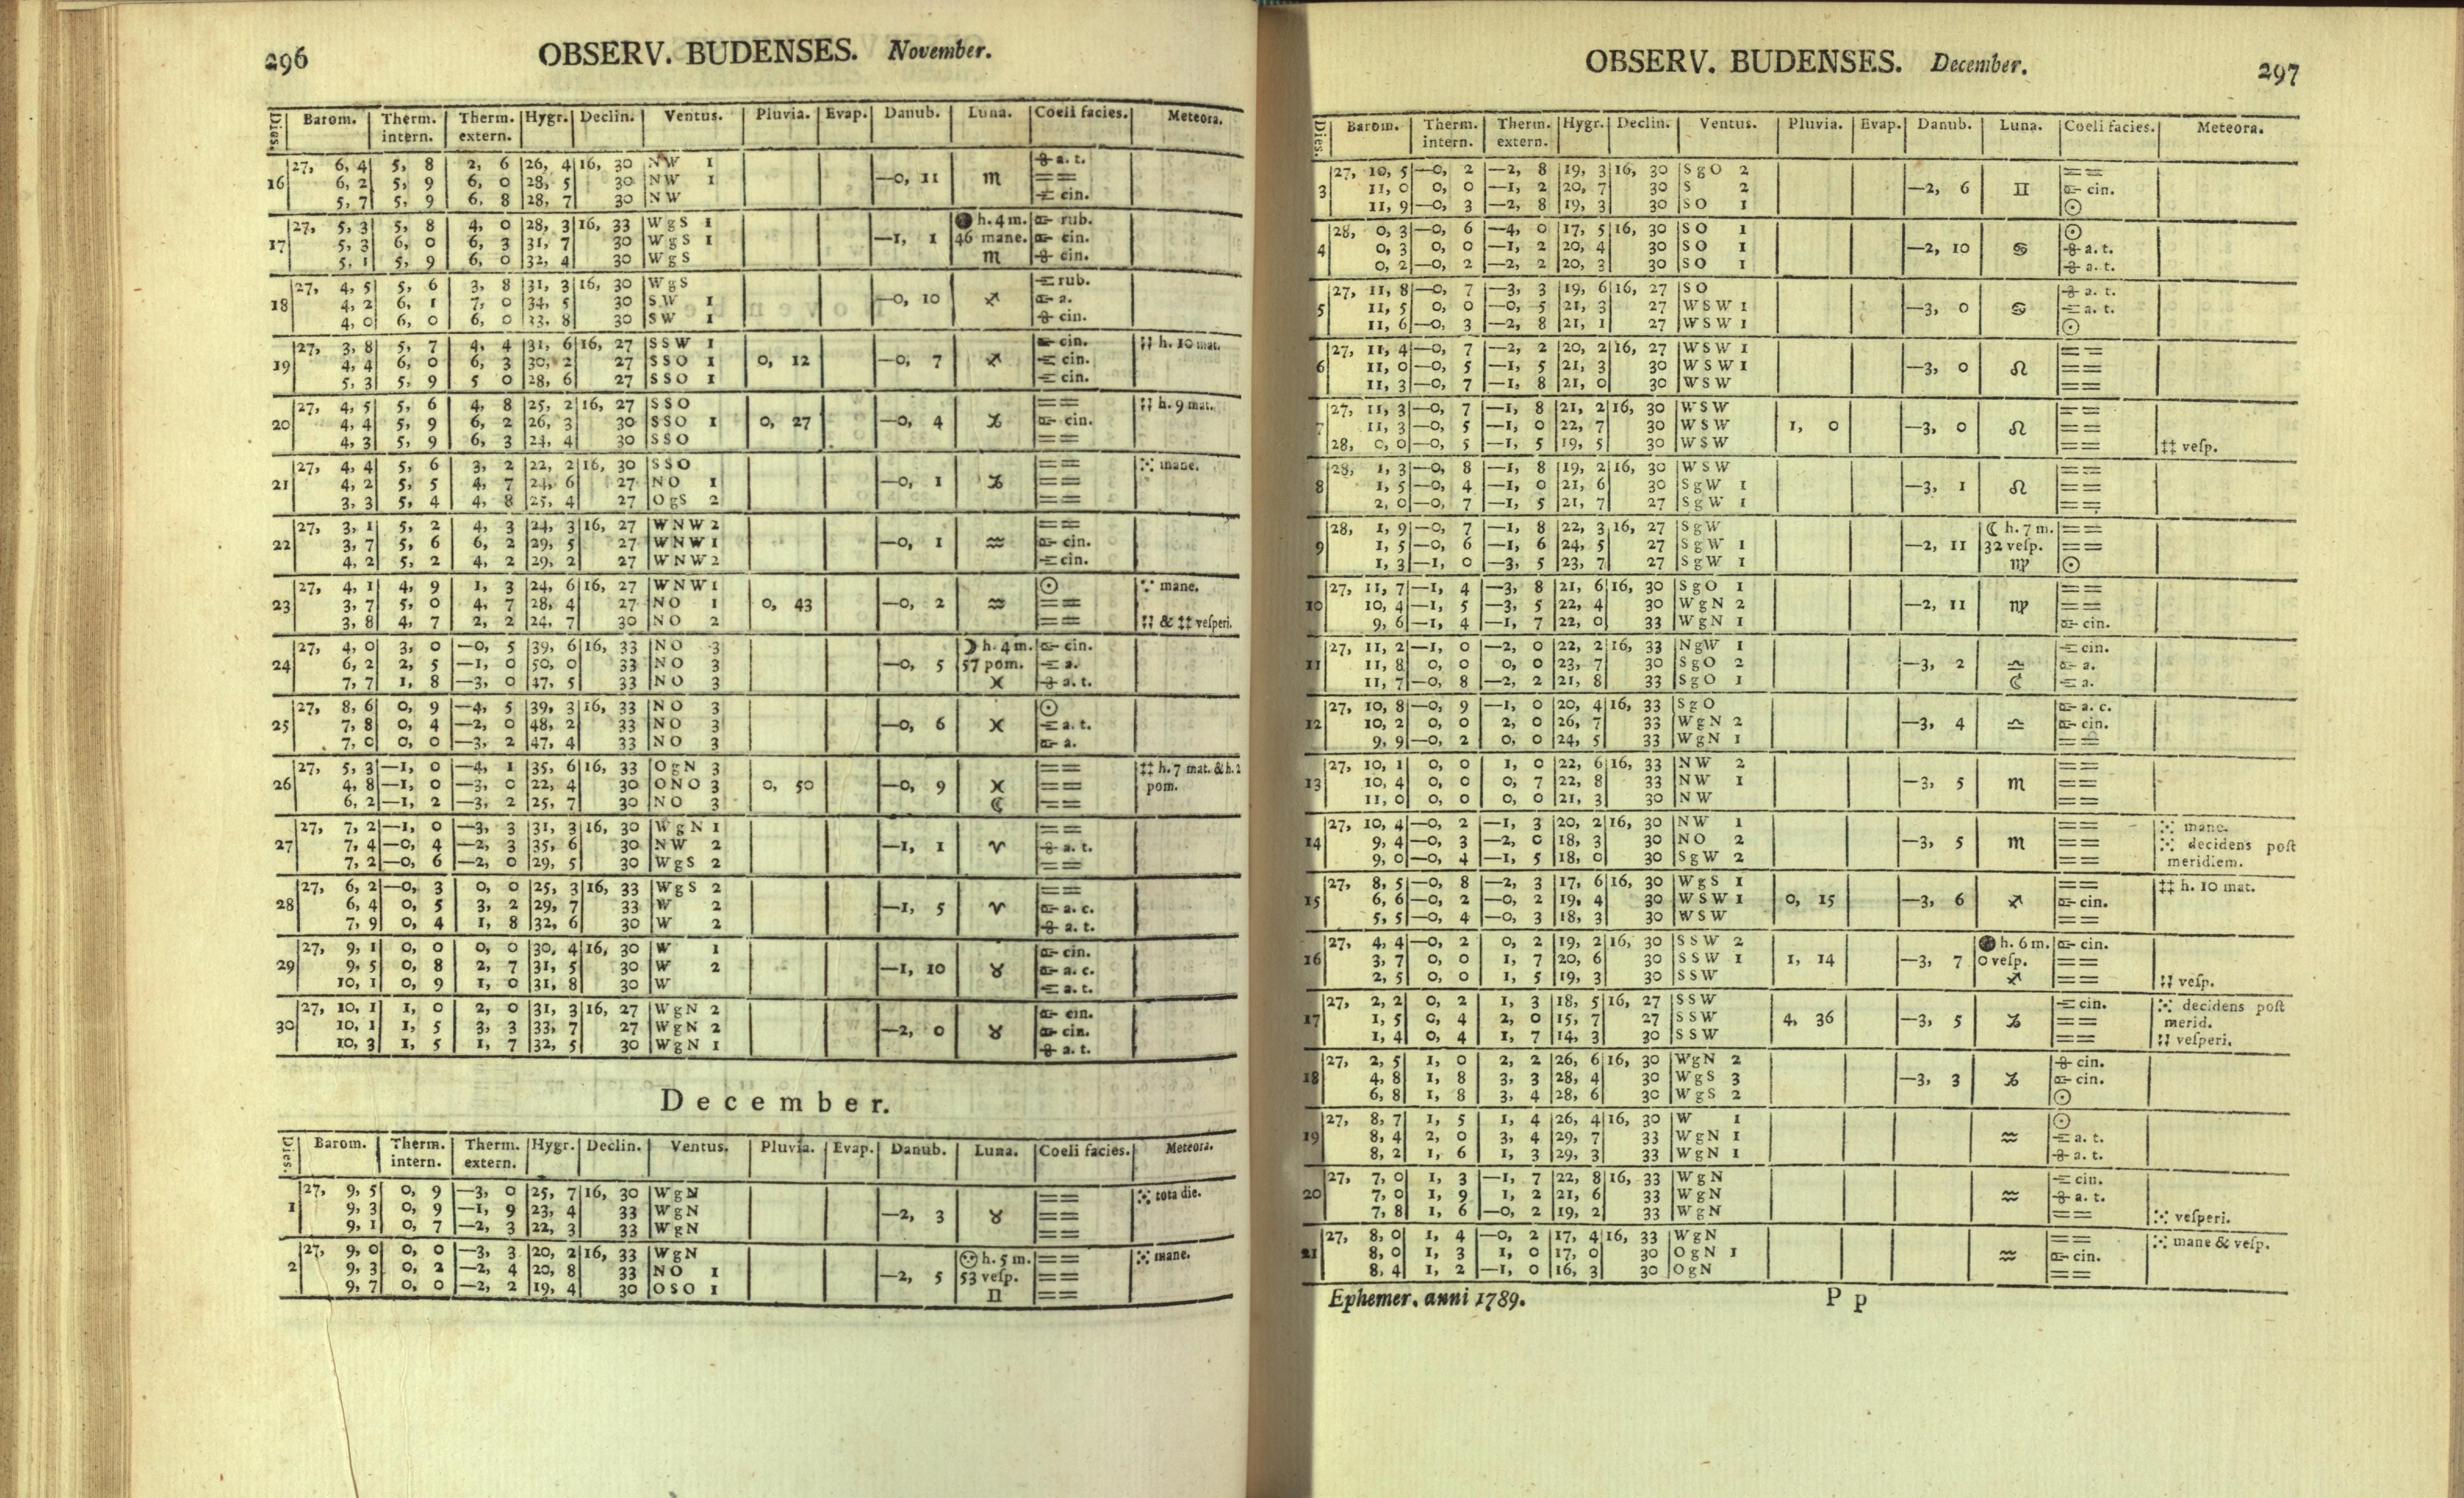 296
OBSERV. BUDENSES. November.
Dies. Barom. Therm. intern. Therm. extern. Hygr. Declin. Ventus. Pluvia. Evap. Danub. Luna. Coeli facies. Meteora.
27, 6, 4 5, 8 2, 6 26, 4 16, 30 NW 1 a. t.
16 6, 2 5, 9 6, 0 28, 5 30 NW 1 —0, 11 ♏ ==
5, 7 5, 9 6, 8 28, 7 30 NW cin.
27, 5, 3 5, 8 4, 0 28, 3 16, 33 WgS 1 ● h. 4 m. rub.
17 5, 3 6, 0 6, 3 31, 7 30 WgS 1 —1, 1 46 mane. cin.
5, 1 5, 9 6, 0 32, 4 30 WgS ♏ cin.
27, 4, 5 5, 6 3, 8 31, 3 16, 30 WgS rub.
18 4, 2 6, 1 7, 0 34, 5 30 SW 1 —0, 10 ♐ a.
4, 0 6, 0 6, 0 33, 8 30 SW 1 cin.
27, 3, 8 5, 7 4, 4 31, 6 16, 27 SSW 1 cin. h. 10 mat.
19 4, 4 6, 0 6, 3 30, 2 27 SSO 1 0, 12 —0, 7 ♐ cin.
5, 3 5, 9 5 0 28, 6 27 SSO 1 cin.
27, 4, 5 5, 6 4, 8 25, 2 16, 27 SSO == h. 9 mat.
20 4, 4 5, 9 6, 2 26, 3 30 SSO 1 0, 27 —0, 4 ♑ cin.
4, 3 5, 9 6, 3 24, 4 30 SSO ==
27, 4, 4 5, 6 3, 2 22, 2 16, 30 SSO == mane.
21 4, 2 5, 5 4, 7 24, 6 27 NO 1 —0, 1 ♑ ==
3, 3 5, 4 4, 8 25, 4 27 OgS 2 ==
27, 3, 1 5, 2 4, 3 24, 3 16, 27 WNW 2 ==
22 3, 7 5, 6 6, 2 29, 5 27 WNW 1 —0, 1 ♒ cin.
4, 2 5, 2 4, 2 29, 2 27 WNW 2 cin.
27, 4, 1 4, 9 1, 3 24, 6 16, 27 WNW 1 ☉ mane.
23 3, 7 5, 0 4, 7 28, 4 27 NO 1 0, 43 —0, 2 ♒ ==
3, 8 4, 7 2, 2 24, 7 30 NO 2 == & ‡‡ veſperi.
27, 4, 0 3, 0 —0, 5 39, 6 16, 33 NO 3 ☽ h. 4 m. cin.
24 6, 2 2, 5 —1, 0 50, 0 33 NO 3 —0, 5 57 pom. a.
7, 7 1, 8 —3, 0 47, 5 33 NO 3 ♓ a. t.
27, 8, 6 0, 9 —4, 5 39, 3 16, 33 NO 3 ☉
25 7, 8 0, 4 —2, 0 48, 2 33 NO 3 —0, 6 ♓ a. t.
7, 0 0, 0 —3, 2 47, 4 33 NO 3 a.
27, 5, 3 —1, 0 —4, 1 35, 6 16, 33 OgN 3 == ‡‡ h. 7 mat. & h. 2
26 4, 8 —1, 0 —3, 0 22, 4 30 ONO 3 0, 50 —0, 9 ♓ == pom.
6, 2 —1, 2 —3, 2 25, 7 30 NO 3 ☾ ==
27, 7, 2 —1, 0 —3, 3 31, 3 16, 30 WgN 1 ==
27 7, 4 —0, 4 —2, 3 35, 6 30 NW 2 —1, 1 ♈ a. t.
7, 2 —0, 6 —2, 0 29, 5 30 WgS 2 ==
27, 6, 2 —0, 3 0, 0 25, 3 16, 33 WgS 2 ==
28 6, 4 0, 5 3, 2 29, 7 33 W 2 —1, 5 ♈ a. c.
7, 9 0, 4 1, 8 32, 6 30 W 2 a. t.
27, 9, 1 0, 0 0, 0 30, 4 16, 30 W 1 cin.
29 9, 5 0, 8 2, 7 31, 5 30 W 2 —1, 10 ♉ a. c.
10, 1 0, 9 1, 0 31, 8 30 W a. t.
27, 10, 1 1, 0 2, 0 31, 3 16, 27 WgN 2 cin.
30 10, 1 1, 5 3, 3 33, 7 27 WgN 2 —2, 0 ♉ cin.
10, 3 1, 5 1, 7 32, 5 30 WgN 1 a. t.
December.
Dies. Barom. Therm. intern. Therm. extern. Hygr. Declin. Ventus. Pluvia. Evap. Danub. Luna. Coeli facies. Meteora.
27, 9, 5 0, 9 —3, 0 25, 7 16, 30 WgN == tota die.
1 9, 3 0, 9 —1, 9 23, 4 33 WgN —2, 3 ♉ ==
9, 1 0, 7 —2, 3 22, 3 33 WgN ==
27, 9, 0 0, 0 —3, 3 20, 2 16, 33 WgN h. 5 m. == mane.
2 9, 3 0, 2 —2, 4 20, 8 33 NO 1 —2, 5 53 veſp. ==
9, 7 0, 0 —2, 2 19, 4 30 OSO 1 ♊ ==
OBSERV. BUDENSES. December. 297
Dies. Barom. Therm. intern. Therm. extern. Hygr. Declin. Ventus. Pluvia. Evap. Danub. Luna. Coeli facies. Meteora.
27, 10, 5 —0, 2 —2, 8 19, 3 16, 30 SgO 2 ==
3 11, 0 0, 0 —1, 2 20, 7 30 S 2 —2, 6 ♊ cin.
11, 9 —0, 3 —2, 8 19, 3 30 SO 1 ☉
28, 0, 3 —0, 6 —4, 0 17, 5 16, 30 SO 1 ☉
4 0, 3 0, 0 —1, 2 20, 4 30 SO 1 —2, 10 ♋ a. t.
0, 2 —0, 2 —2, 2 20, 3 30 SO 1 a. t.
27, 11, 8 —0, 7 —3, 3 19, 6 16, 27 SO a. t.
5 11, 5 0, 0 —0, 5 21, 3 27 WSW 1 —3, 0 ♋ a. t.
11, 6 —0, 3 —2, 8 21, 1 27 WSW 1 ☉
27, 11, 4 —0, 7 —2, 2 20, 2 16, 27 WSW 1 ==
6 11, 0 —0, 5 —1, 5 21, 3 30 WSW 1 —3, 0 ♌ ==
11, 3 —0, 7 —1, 8 21, 0 30 WSW ==
27, 11, 3 —0, 7 —1, 8 21, 2 16, 30 WSW ==
7 11, 3 —0, 5 —1, 0 22, 7 30 WSW 1, 0 —3, 0 ♌ ==
28, 0, 0 —0, 5 —1, 5 19, 5 30 WSW == ‡‡ veſp.
28, 1, 3 —0, 8 —1, 8 19, 2 16, 30 WSW ==
8 1, 5 —0, 4 —1, 0 21, 6 30 SgW 1 —3, 1 ♌ ==
2, 0 —0, 7 —1, 5 21, 7 27 SgW 1 ==
28, 1, 9 —0, 7 —1, 8 22, 3 16, 27 SgW ☾ h. 7 m. ==
9 1, 5 —0, 6 —1, 6 24, 5 27 SgW 1 —2, 11 32 veſp. ==
1, 3 —1, 0 —3, 5 23, 7 27 SgW 1 ♍ ☉
27, 11, 7 —1, 4 —3, 8 21, 6 16, 30 SgO 1 ==
10 10, 4 —1, 5 —3, 5 22, 4 30 WgN 2 —2, 11 ♍ ==
9, 6 —1, 4 —1, 7 22, 0 33 WgN 1 cin.
27, 11, 2 —1, 0 —2, 0 22, 2 16, 33 NgW 1 cin.
11 11, 8 0, 0 0, 0 23, 7 30 SgO 2 —3, 2 ♎ a.
11, 7 —0, 8 —2, 2 21, 8 33 SgO 1 ☾ a.
27, 10, 8 —0, 9 —1, 0 20, 4 16, 33 SgO a. c.
12 10, 2 0, 0 2, 0 26, 7 33 WgN 2 —3, 4 ♎ cin.
9, 9 —0, 2 0, 0 24, 5 33 WgN 1 ==
27, 10, 1 0, 0 1, 0 22, 6 16, 33 NW 2 ==
13 10, 4 0, 0 0, 7 22, 8 33 NW 1 —3, 5 ♏ ==
11, 0 0, 0 0, 0 21, 3 30 NW ==
27, 10, 4 —0, 2 —1, 3 20, 2 16, 30 NW 1 == mane.
14 9, 4 —0, 3 —2, 0 18, 3 30 NO 2 —3, 5 ♏ == decidens poſt
9, 0 —0, 4 —1, 5 18, 0 30 SgW 2 == meridiem.
27, 8, 5 —0, 8 —2, 3 17, 6 16, 30 WgS 1 == ‡‡ h. 10 mat.
15 6, 6 —0, 2 —0, 2 19, 4 30 WSW 1 0, 15 —3, 6 ♐ cin.
5, 5 —0, 4 —0, 3 18, 3 30 WSW ==
27, 4, 4 —0, 2 0, 2 19, 2 16, 30 SSW 2 ● h. 6 m. cin.
16 3, 7 0, 0 1, 7 20, 6 30 SSW 1 1, 14 —3, 7 0 veſp. ==
2, 5 0, 0 1, 5 19, 3 30 SSW ♐ == veſp.
27, 2, 2 0, 2 1, 3 18, 5 16, 27 SSW cin. decidens poſt
17 1, 5 0, 4 2, 0 15, 7 27 SSW 4, 36 —3, 5 ♑ == merid.
1, 4 0, 4 1, 7 14, 3 30 SSW == veſperi.
27, 2, 5 1, 0 2, 2 26, 6 16, 30 WgN 2 cin.
18 4, 8 1, 8 3, 3 28, 4 30 WgS 3 —3, 3 ♑ cin.
6, 8 1, 8 3, 4 28, 6 30 WgS 2 ☉
27, 8, 7 1, 5 1, 4 26, 4 16, 30 W 1 ☉
19 8, 4 2, 0 3, 4 29, 7 33 WgN 1 ♒ a. t.
8, 2 1, 6 1, 3 29, 3 33 WgN 1 a. t.
27, 7, 0 1, 3 —1, 7 22, 8 16, 33 WgN cin.
20 7, 0 1, 9 1, 2 21, 6 33 WgN ♒ a. t.
7, 8 1, 6 —0, 2 19, 2 33 WgN == veſperi.
27, 8, 0 1, 4 —0, 2 17, 4 16, 33 WgN == mane & veſp.
21 8, 0 1, 3 1, 0 17, 0 30 OgN 1 ♒ cin.
8, 4 1, 2 —1, 0 16, 3 30 OgN ==
Ephemer. anni 1789. P p